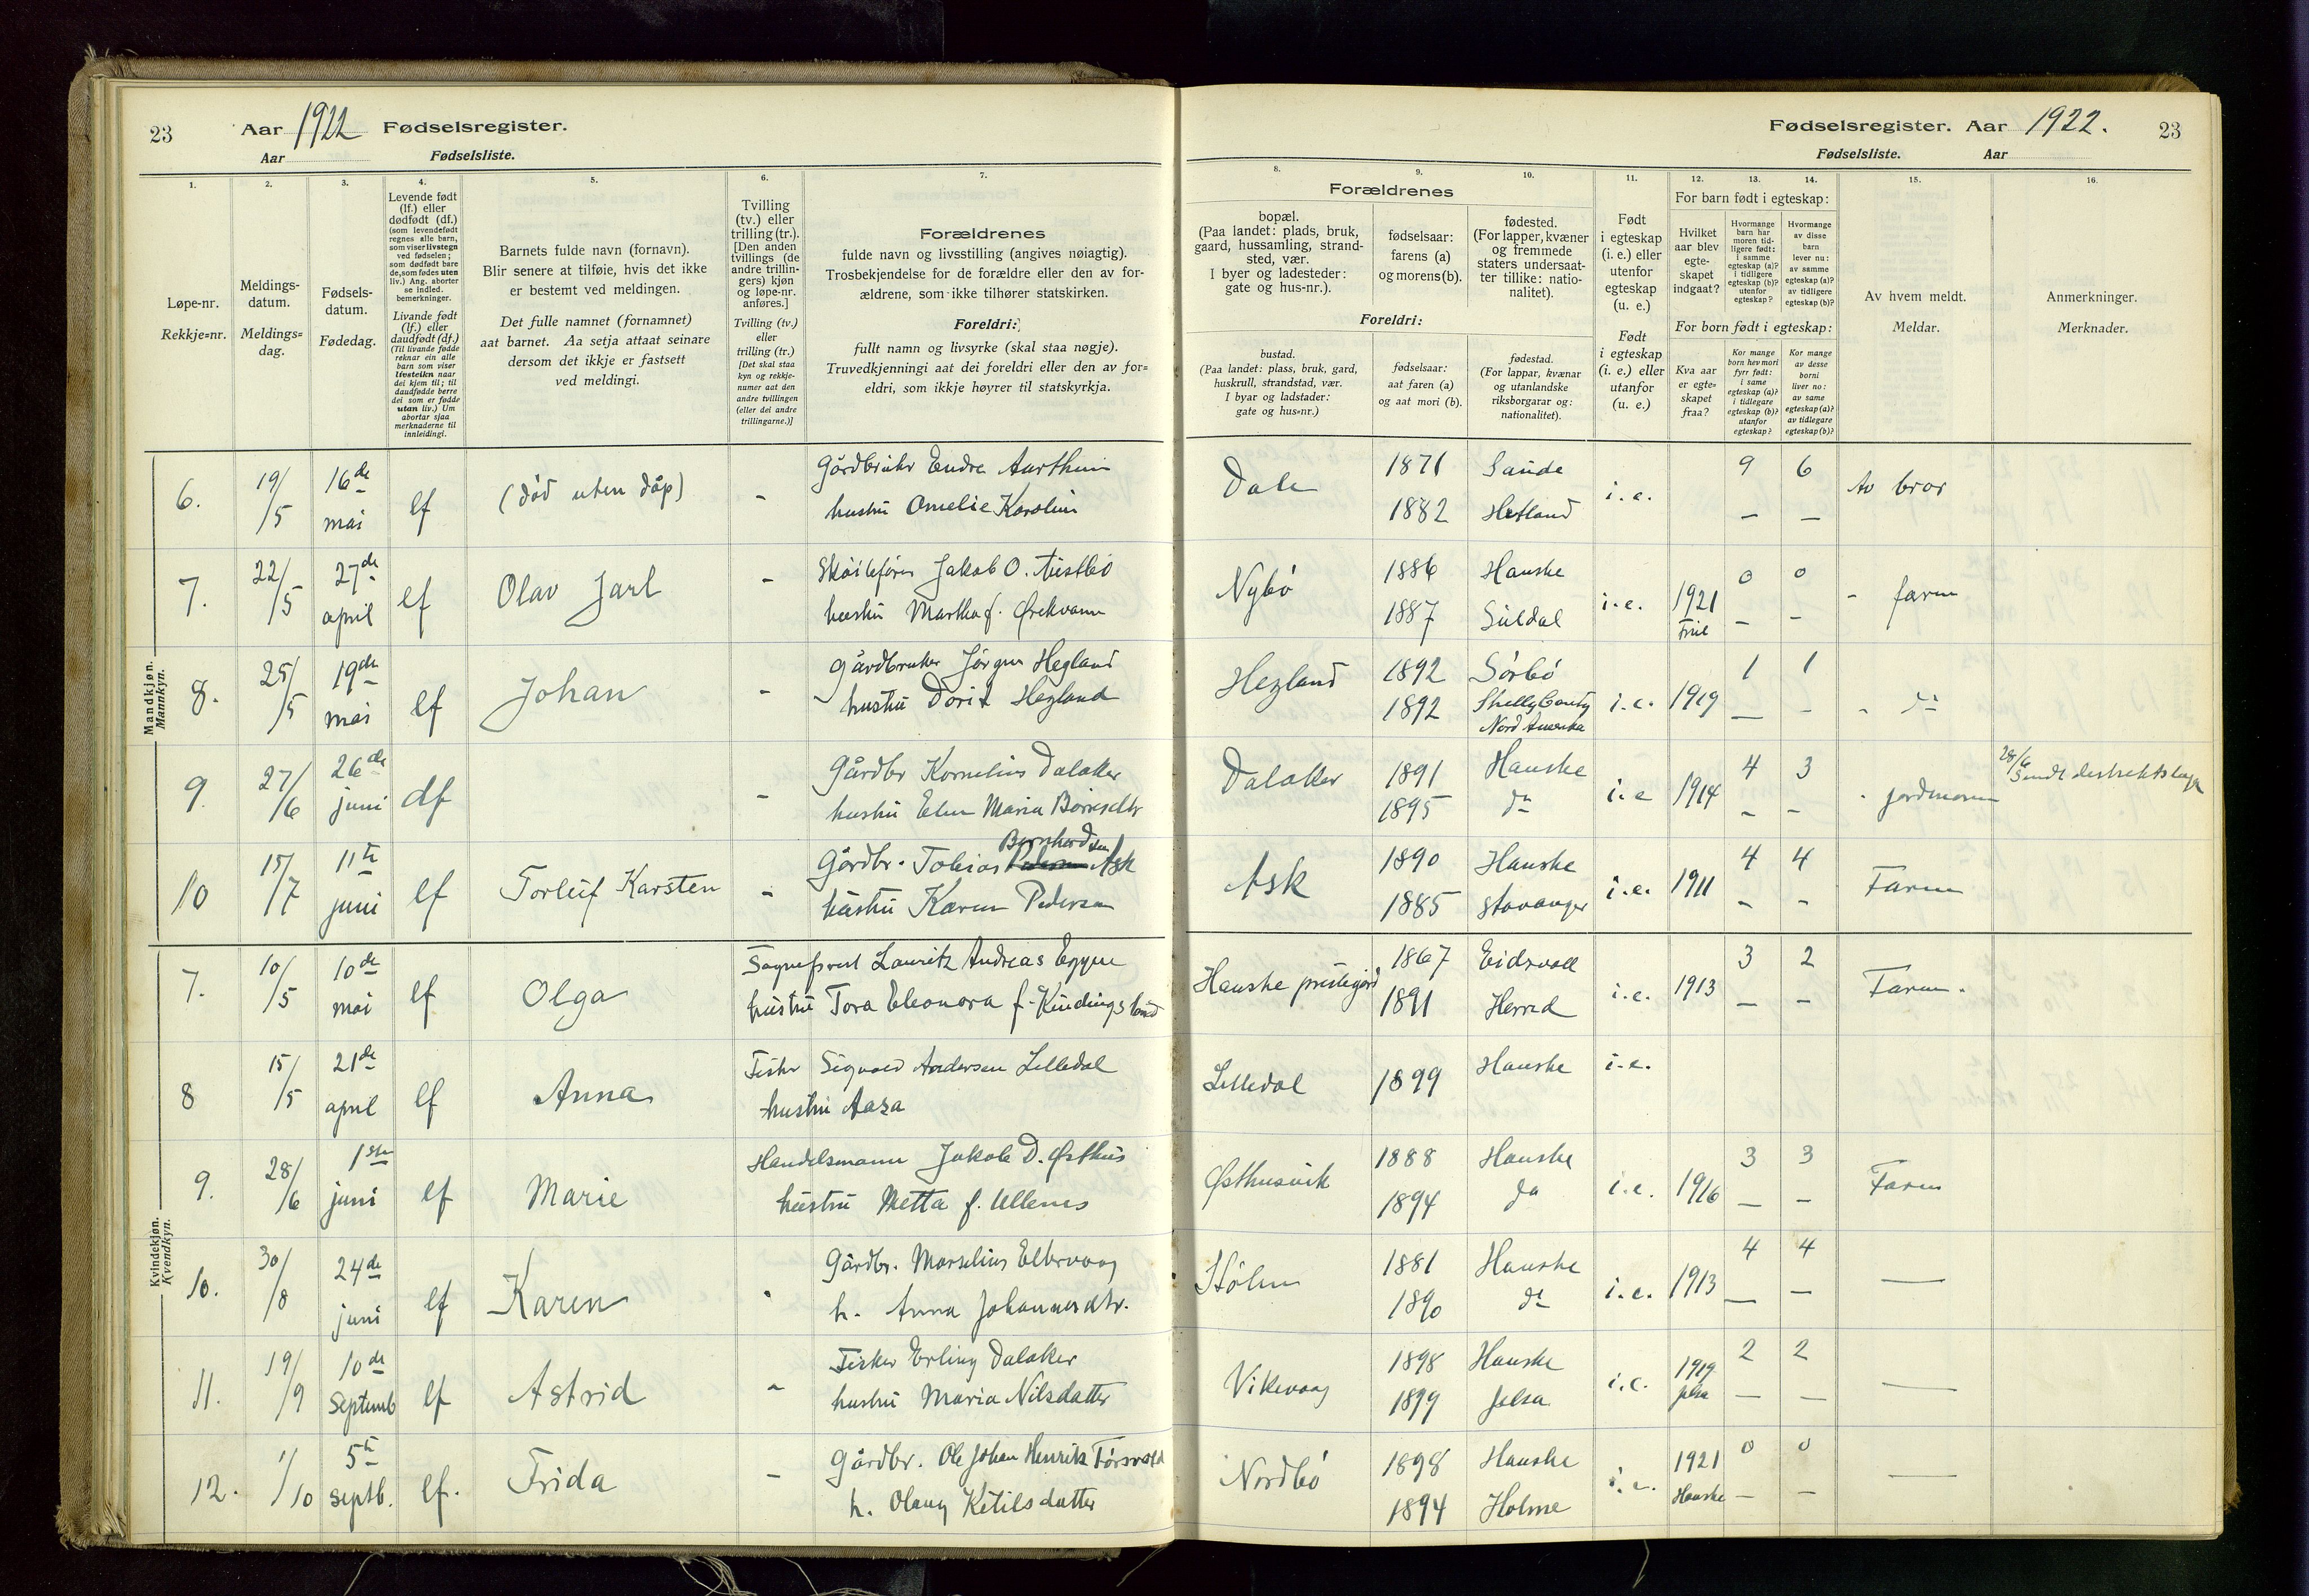 23 Aar 1922 Fødselsregister.
Aar Fødselsliste.
1. 2. 3. 4. 5. 6. 7.
Løpe-nr.
Rekkje=nr.
Meldings-
datum.
Meldings=
dag.
Fødsels-
datum.
Fødedag.
Levende født
(lf.) eller
dødfødt (df.)
(som levendefødt
regnes alle barn,
som viser livstegn
ved fødselen;
som dødfødt bare
de, som fødes uten
liv.) Ang. aborter
se indled.
bemerkninger.
Livande født
(lf.) eller
daudfødt (df.)
(Til livande fødde
reknar ein alle
barn som viser
livsteikn naar
dei kjem til; til
daudfødde berre
dei som er fødde
utan liv.) Um
abortar sjaa
merknaderne til
innleidingi.
Barnets fulde navn (fornavn).
Blir senere at tilføie, hvis det ikke
er bestemt ved meldingen.
Det fulle namnet (fornamnet)
aat barnet. Aa setja attaat seinare
dersom det ikkje er fastsett
ved meldingi.
Tvilling
(tv.) eller
trilling (tr.).
[Den anden
tvillings (de
andre trillin-
gers) kjøn
og løpe-nr.
anføres.]
Tvilling (tv.)
eller
trilling (tr.)
[Det skal staa
kyn og rekkje-
numer aat den
andre tvillingen
(eller dei andre
trillingarne.)]
Forældrenes
fulde navn og livsstilling (angives nøiagtig).
Trosbekjendelse for de forældre eller den av for-
ældrene, som ikke tilhører statskirken.
Foreldri:
fullt namn og livsyrke (skal staa nøgje).
Truvedkjenningi aat dei foreldri eller den av for=
eldri, som ikkje høyrer til statskyrkja.
Mandkjøn.
Mannkyn.
6. 19/5 16de mai lf (død uten dåp) -
hustru Amelie Karolin
7. 22/5 27de april lf Olav Jarl -
Jakob O. Austbø
hustru Martha f.
8. 25/5 19de mai lf Johan -
Gårdbruker Jørgen Hegland
hustru Dorit Hegland
9. 27/6 26de juni df -
Gårdbr Kornelius Dalaker
hustru Elen Maria
10 15/7 11te juni lf Torleif Karsten -
Bernhardsen
Gårdbr. Tobias Ask
hustru Karen Pedersen
Kvindekjøn.
Kvendkyn.
7. 10/5 10de mai lf Olga
Sogneprest Lauritz Andreas
hustru Tora Eleonora f.
8 15/5 21de april lf Anna
Fisker Sigvald Andersen Lilledal
hustru Aasa
9. 28/6 1ste juni lf Marie
Handelsmann Jakob D. Østhus
hustru Metta f. Ullenes
10. 30/8 24de juni lf Karen
Gårdbr. Marselius Eltervaag
h. Anna Johannesdtr.
11. 19/9 10de Septemb lf Astrid -
Fisker Erling Dalaker
hustru Maria Nilsdatter
12. 1/10 5te Septb. lf. Frida -
Gårdbr. Ole Johan Henrik
h. Olaug Ketilsdatter
Fødselsregister. Aar 1922. 23
Fødselsliste. Aar
8. 9. 10. 11. 12. 13. 14. 15. 16.
Forældrenes
bopæl.
(Paa landet: plads, bruk,
gaard, hussamling, strand-
sted, vær.
I byer og ladesteder:
gate og hus-nr.).
fødselsaar:
farens (a)
og morens (b).
fødested.
(For lapper, kvæner
og fremmede
staters undersaat-
ter tillike: natio-
nalitet).
Foreldri:
bustad.
(Paa landet: plass, bruk, gard,
huskrull, strandstad, vær.
I byar og ladstader:
gate og hus=nr.)
fødselsaar:
aat faren (a)
og aat mori (b).
fødestad.
(For lappar, kvænar
og utanlandske
riksborgarar og:
nationalitet).
Født
i egteskap
(i. e.) eller
utenfor
egteskap
(u. e.)
Født
i egteskap
(i. e.) eller
utanfor
(u. e.)
For barn født i egteskap:
Hvilket
aar blev
egte-
skapet
indgaat?
Hvormange
barn har
moren tid-
ligere født:
i samme
egteskap (a)?
i tidligere
egteskap (b)?
utenfor
egteskap?
Hvormange
av disse
barn
lever nu:
av samme
egteskap (a)?
av tidligere
egteskap (b)?
For born født i egteskap:
Kva aar
er egte=
skapet
fraa?
Kor mange
born hev mori
fyrr født:
i same
egteskap (a)?
i tidlegare
egteskap (b)?
utanfor
egteskap?
Kor mange
av desse
borni
liver no:
av same
egteskap (a)?
av tidlegare
egteskap (b)?
Av hvem meldt.
Meldar.
Anmerkninger.
Merknader.
Dale 1871 Sande i.e. 9 6 Av bror
1882 Hetland — —
Nybø 1886 Hauske i.e. 1921 0 0 - faren
1887 Suldal — —
Hegland 1892 Sørbø i.e. 1919 1 1 - do
1892 Shelly County
Nord Amerika — -
Dalaker 1891 Hauske i.e 1914 4 3 - jordmoren 28/6 Sendt
1895 do - -
Ask 1890 Hauske i.e. 1911 4 4 Faren
1885 Stavanger - -
Hauske prestegård 1867 Eidsvoll i.e. 1913 3 2 Faren.
1891 — —
Lilledal 1899 Hauske i.e.
Østhusvik 1888 Hauske i.e. 1916 3 3 Faren
1894 do — —
1881 Hauske i.e. 1913 4 4 —
1890 do — —
Vikevaag 1898 Hauske i.e. 1919 2 2 —
1899 Jelsa Jelsa — —
Nordbø 1898 Hauske i.e. 1921 0 0 —
1894 Holme Hauske — —